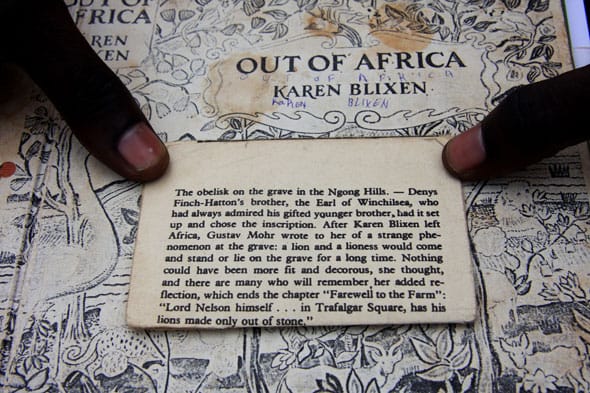 OUT OF
AFRICA
OUT OF AFRICA
OUT OF AFRICA
KAREN BLIXEN
KAREN BLIXEN
The obelisk on the grave in the Ngong Hills. — Denys
Finch-Hatton's brother, the Earl of Winchilsea, who
had always admired his gifted younger brother, had it set
up and chose the inscription. After Karen Blixen left
Africa, Gustav Mohr wrote to her of a strange phe-
nomenon at the grave: a lion and a lioness would come
and stand or lie on the grave for a long time. Nothing
could have been more fit and decorous, she thought,
and there are many who will remember her added re-
flection, which ends the chapter "Farewell to the Farm":
"Lord Nelson himself . . . in Trafalgar Square, has his
lions made only out of stone."